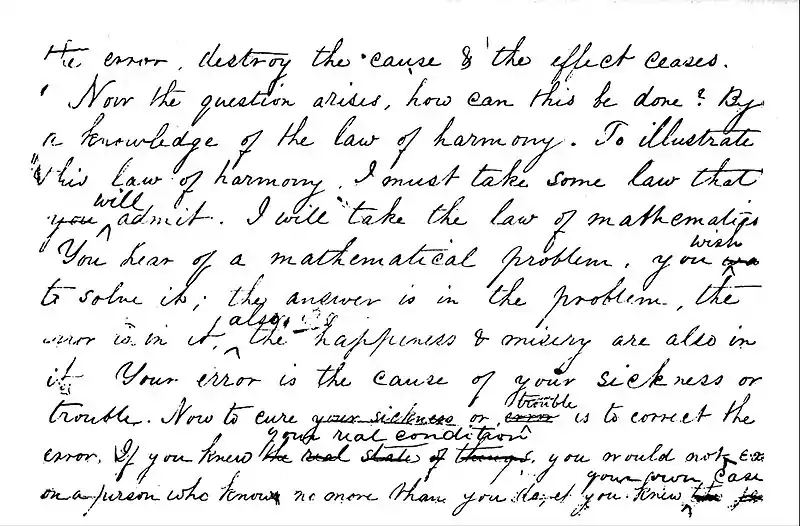 the error, destroy the cause & the effect ceases.
Now the question arises, how can this be done? By
a knowledge of the law of harmony. To illustrate
this law of harmony, I must take some law that
will
you admit. I will take the law of mathematics
wish
You hear of a mathematical problem, you
to solve it; the answer is in the problem, the
also,
error is in it, the happiness & misery are also in
it Your error is the cause of your sickness or
trouble
trouble. Now to cure your sickness or error is to correct the
your real condition
error. If you knew the real state of things, you would not
your own case
on a person who knows no more than you do, if you knew